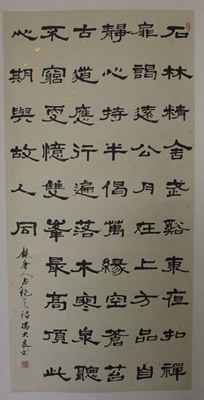 石林精舍武谿東夜扣禪
扉謁遠公月在上方品自
靜心持半偈萬緣空蒼苔
古道應行遍落木寒泉聽
不窮更憶雙峯最高頂此
心期與故人同